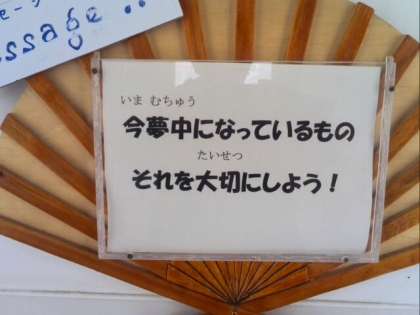 ssage
いま むちゅう
今夢中になっているもの
たいせつ
それを大切にしよう！